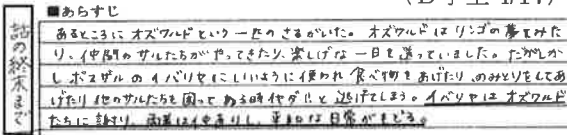 ■あらすじ
話の終末まで
あるところにオズワルドという一匹のさるがいた。オズワルドはリンゴの夢をみた
り、仲間のサルたちがやってきたり、楽しげな一日を送っていました。だがしか
し、ボスザルのイバリヤにしいように使われ食べ物をあげたり、のみとりをしてあ
げたり他のサルたちを困ってある時イヤダ!と逃げてしまう。イバリヤはオズワルド
たちに謝り、両者は仲直りし、平和な日常がもどる。